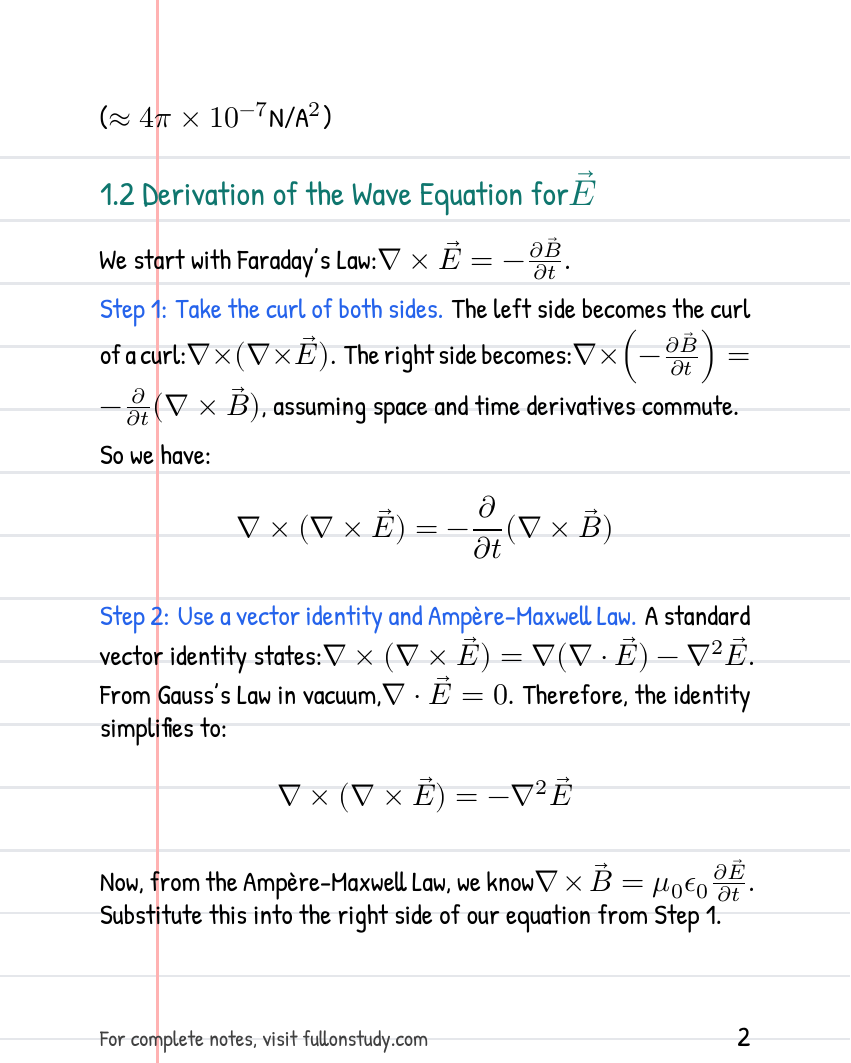 (≈ 4π × 10⁻⁷N/A²)
1.2 Derivation of the Wave Equation for E⃗
We start with Faraday's Law:∇ × E⃗ = −∂B⃗/∂t.
Step 1: Take the curl of both sides. The left side becomes the curl
of a curl:∇×(∇×E⃗). The right side becomes:∇×(−∂B⃗/∂t) =
−∂/∂t(∇ × B⃗), assuming space and time derivatives commute.
So we have:
∇ × (∇ × E⃗) = −∂/∂t(∇ × B⃗)
Step 2: Use a vector identity and Ampère-Maxwell Law. A standard
vector identity states:∇ × (∇ × E⃗) = ∇(∇ · E⃗) − ∇²E⃗.
From Gauss's Law in vacuum,∇ · E⃗ = 0. Therefore, the identity
simplifies to:
∇ × (∇ × E⃗) = −∇²E⃗
Now, from the Ampère-Maxwell Law, we know∇ × B⃗ = μ₀ϵ₀∂E⃗/∂t.
Substitute this into the right side of our equation from Step 1.
For complete notes, visit fullonstudy.com 2